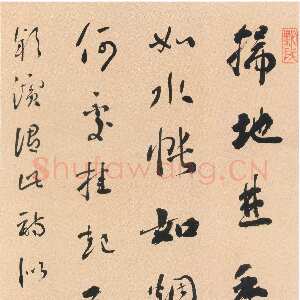 掃地焚香
如水帳如烟
何處挂起
濱謂此詩似
Shufawang.CN